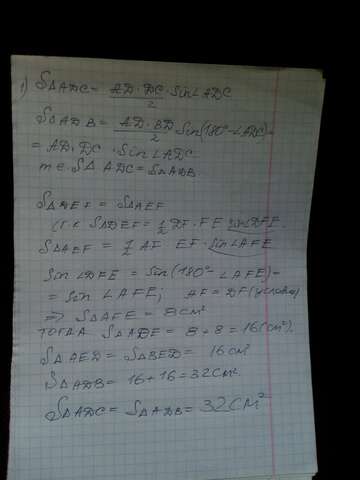 1) S△ADC = AD·DC/2 · sin∠ADC
S△ADB = AD·BD/2 sin(180°-∠ADC)=
= AD·DC · sin∠ADC
т.е. S△ ADC = S△ADB
S△DEF = S△AEF
(т.к S△DEF = 1/2 DF·FE sin DFE.
S△AEF = 1/2 AF EF·sin∠AFE
sin∠DFE = sin(180°-∠AFE)=
= sin∠AFE; AF = DF (условие)
⇒ S△AFE = 8 см²
тогда S△ADE = 8+8=16(см²).
S△AED = S△BED = 16 см²
S△ADB = 16+16=32см².
S△ADC = S△ADB = 32см²